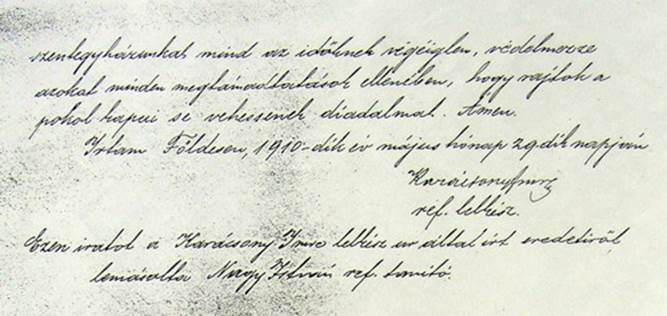 szentegyházunkat mind az időknek végéiglen, védelmezze
azokat minden megtámadtatások ellenében, hogy rajtok a
pokol kapui se vehessenek diadalmat. Ámen.
Irtam Földesen, 1910-dik év május hónap 29.dik napján
Karácsony Imre
ref. lelkész.
Ezen iratot a Karácsony Imre lelkész ur által írt eredetiről
lemásolta Nagy István ref. tanító.